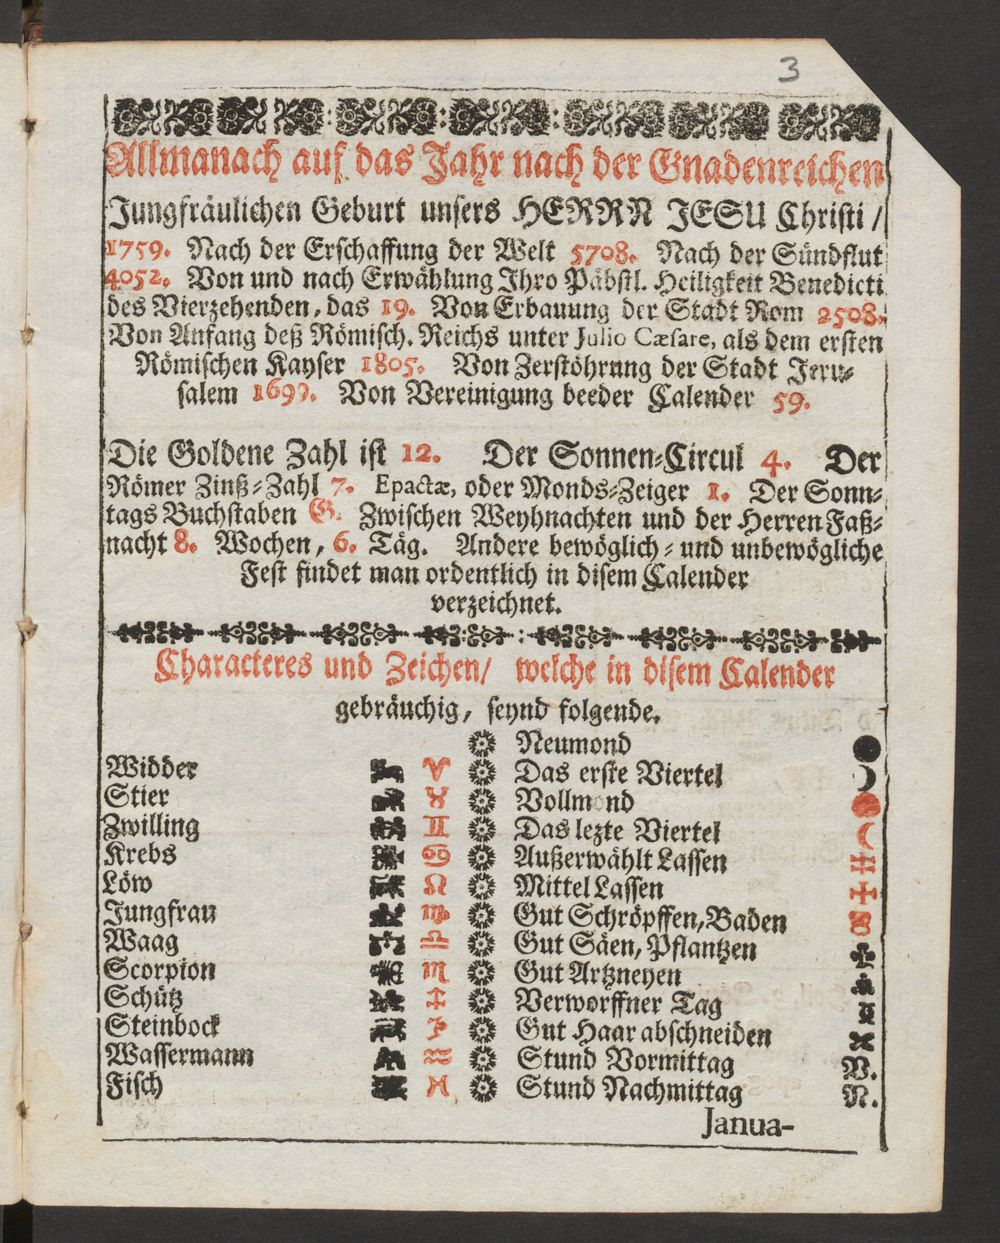 3
Allmanach auf das Jahr nach der Gnadenreichen
Jungfräulichen Geburt unsers HERRN JESU Christi /
1759. Nach der Erschaffung der Welt 5708. Nach der Sündflut
4052. Von und nach Erwählung Ihro Päbstl. Heiligkeit Benedicti
des Vierzehenden, das 19. Von Erbauung der Stadt Rom 2508.
Von Anfang deß Römisch. Reichs unter Julio Cæsare, als dem ersten
Römischen Kayser 1805. Von Zerstöhrung der Stadt Jeru-
salem 1699. Von Vereinigung beeder Calender 59.
Die Goldene Zahl ist 12. Der Sonnen-Circul 4. Der
Römer Zinß-Zahl 7. Epactæ, oder Monds-Zeiger 1. Der Sonn-
tags Buchstaben G. Zwischen Weyhnachten und der Herren Faß-
nacht 8. Wochen, 6. Täg. Andere bewöglich- und unbewögliche
Fest findet man ordentlich in disem Calender
verzeichnet.
Characteres und Zeichen/ welche in disem Calender
gebräuchig, seynd folgende.
Neumond
Widder ♈ Das erste Viertel
Stier ♉ Vollmond
Zwilling ♊ Das lezte Viertel
Krebs ♋ Außerwählt Lassen
Löw ♌ Mittel Lassen
Jungfrau ♍ Gut Schröpffen, Baden
Waag ♎ Gut Säen, Pflantzen
Scorpion ♏ Gut Artzneyen
Schütz ♐ Verworffner Tag
Steinbock ♑ Gut Haar abschneiden
Wassermann ♒ Stund Vormittag V.
Fisch ♓ Stund Nachmittag N.
Janua-